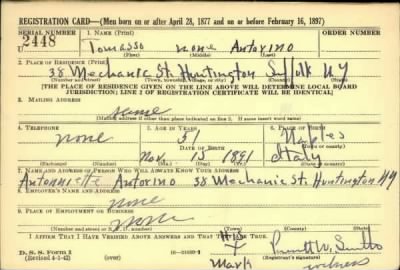 REGISTRATION CARD—(Men born on or after April 28, 1877 and on or before February 16, 1897)
SERIAL NUMBER 1. NAME (Print) ORDER NUMBER
U 2448 Tomasso none Antorino
(First) (Middle) (Last)
2. PLACE OF RESIDENCE (Print)
38 Mechanic St. Huntington Suffolk NY
(Number and street) (Town, township, village, or city) (County) (State)
[THE PLACE OF RESIDENCE GIVEN ON THE LINE ABOVE WILL DETERMINE LOCAL BOARD
JURISDICTION; LINE 2 OF REGISTRATION CERTIFICATE WILL BE IDENTICAL]
3. MAILING ADDRESS
same
[Mailing address if other than place indicated on line 2. If same insert word same]
4. TELEPHONE 5. AGE IN YEARS 6. PLACE OF BIRTH
none 51 Naples
DATE OF BIRTH (Town or county)
Nov. 15 1891 Italy
(Exchange) (Number) (Mo.) (Day) (Yr.) (State or country)
7. NAME AND ADDRESS OF PERSON WHO WILL ALWAYS KNOW YOUR ADDRESS
Antonniette Antorino 38 Mechanic St. Huntington NY
8. EMPLOYER'S NAME AND ADDRESS
none
9. PLACE OF EMPLOYMENT OR BUSINESS
none
(Number and street or R. F. D. number) (Town) (County) (State)
I AFFIRM THAT I HAVE VERIFIED ABOVE ANSWERS AND THAT THEY ARE TRUE.
His
D. S. S. Form 1
(Revised 4-1-42) (Registrant's signature)
Mark witness